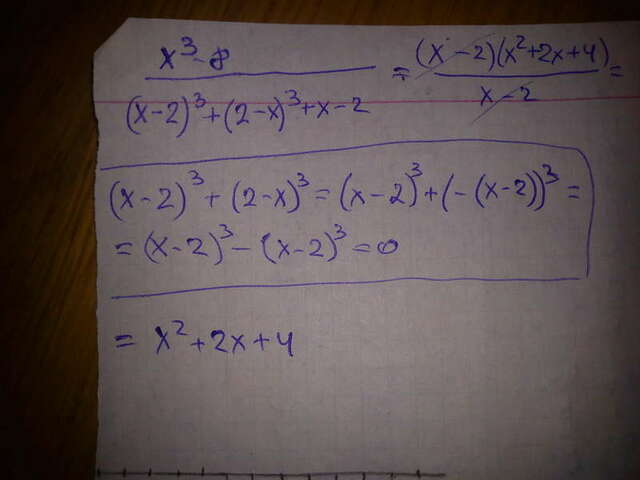 x³-8 / (x-2)³+(2-x)³+x-2 = (x-2)(x²+2x+4) / x-2 =
(x-2)³+(2-x)³=(x-2)³+(-(x-2))³=
=(x-2)³-(x-2)³=0
= x²+2x+4